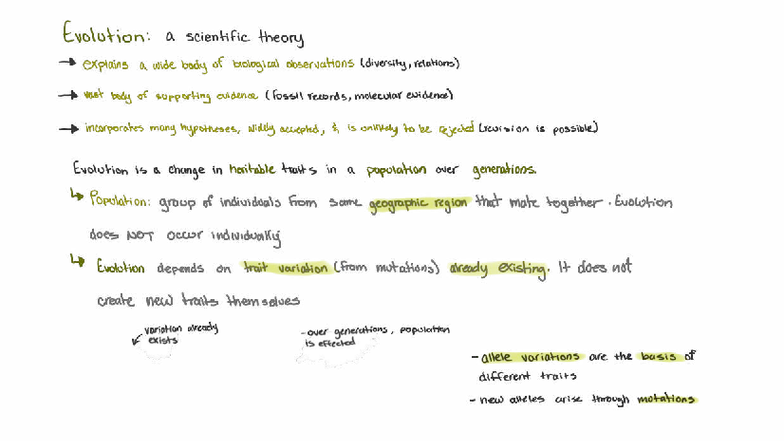 Evolution: a scientific theory
→ explains a wide body of biological observations (diversity, relations)
→ vast body of supporting evidence (fossil records, molecular evidence)
→ incorporates many hypotheses, widely accepted, & is unlikely to be rejected (revision is possible)
Evolution is a change in heritable traits in a population over generations.
↳ Population: group of individuals from same geographic region that mate together. Evolution
does NOT occur individually
↳ Evolution depends on trait variation (from mutations) already existing. It does not
create new traits themselves
variation already
exists
- over generations, population
is effected
- allele variations are the basis of
different traits
- new alleles arise through mutations